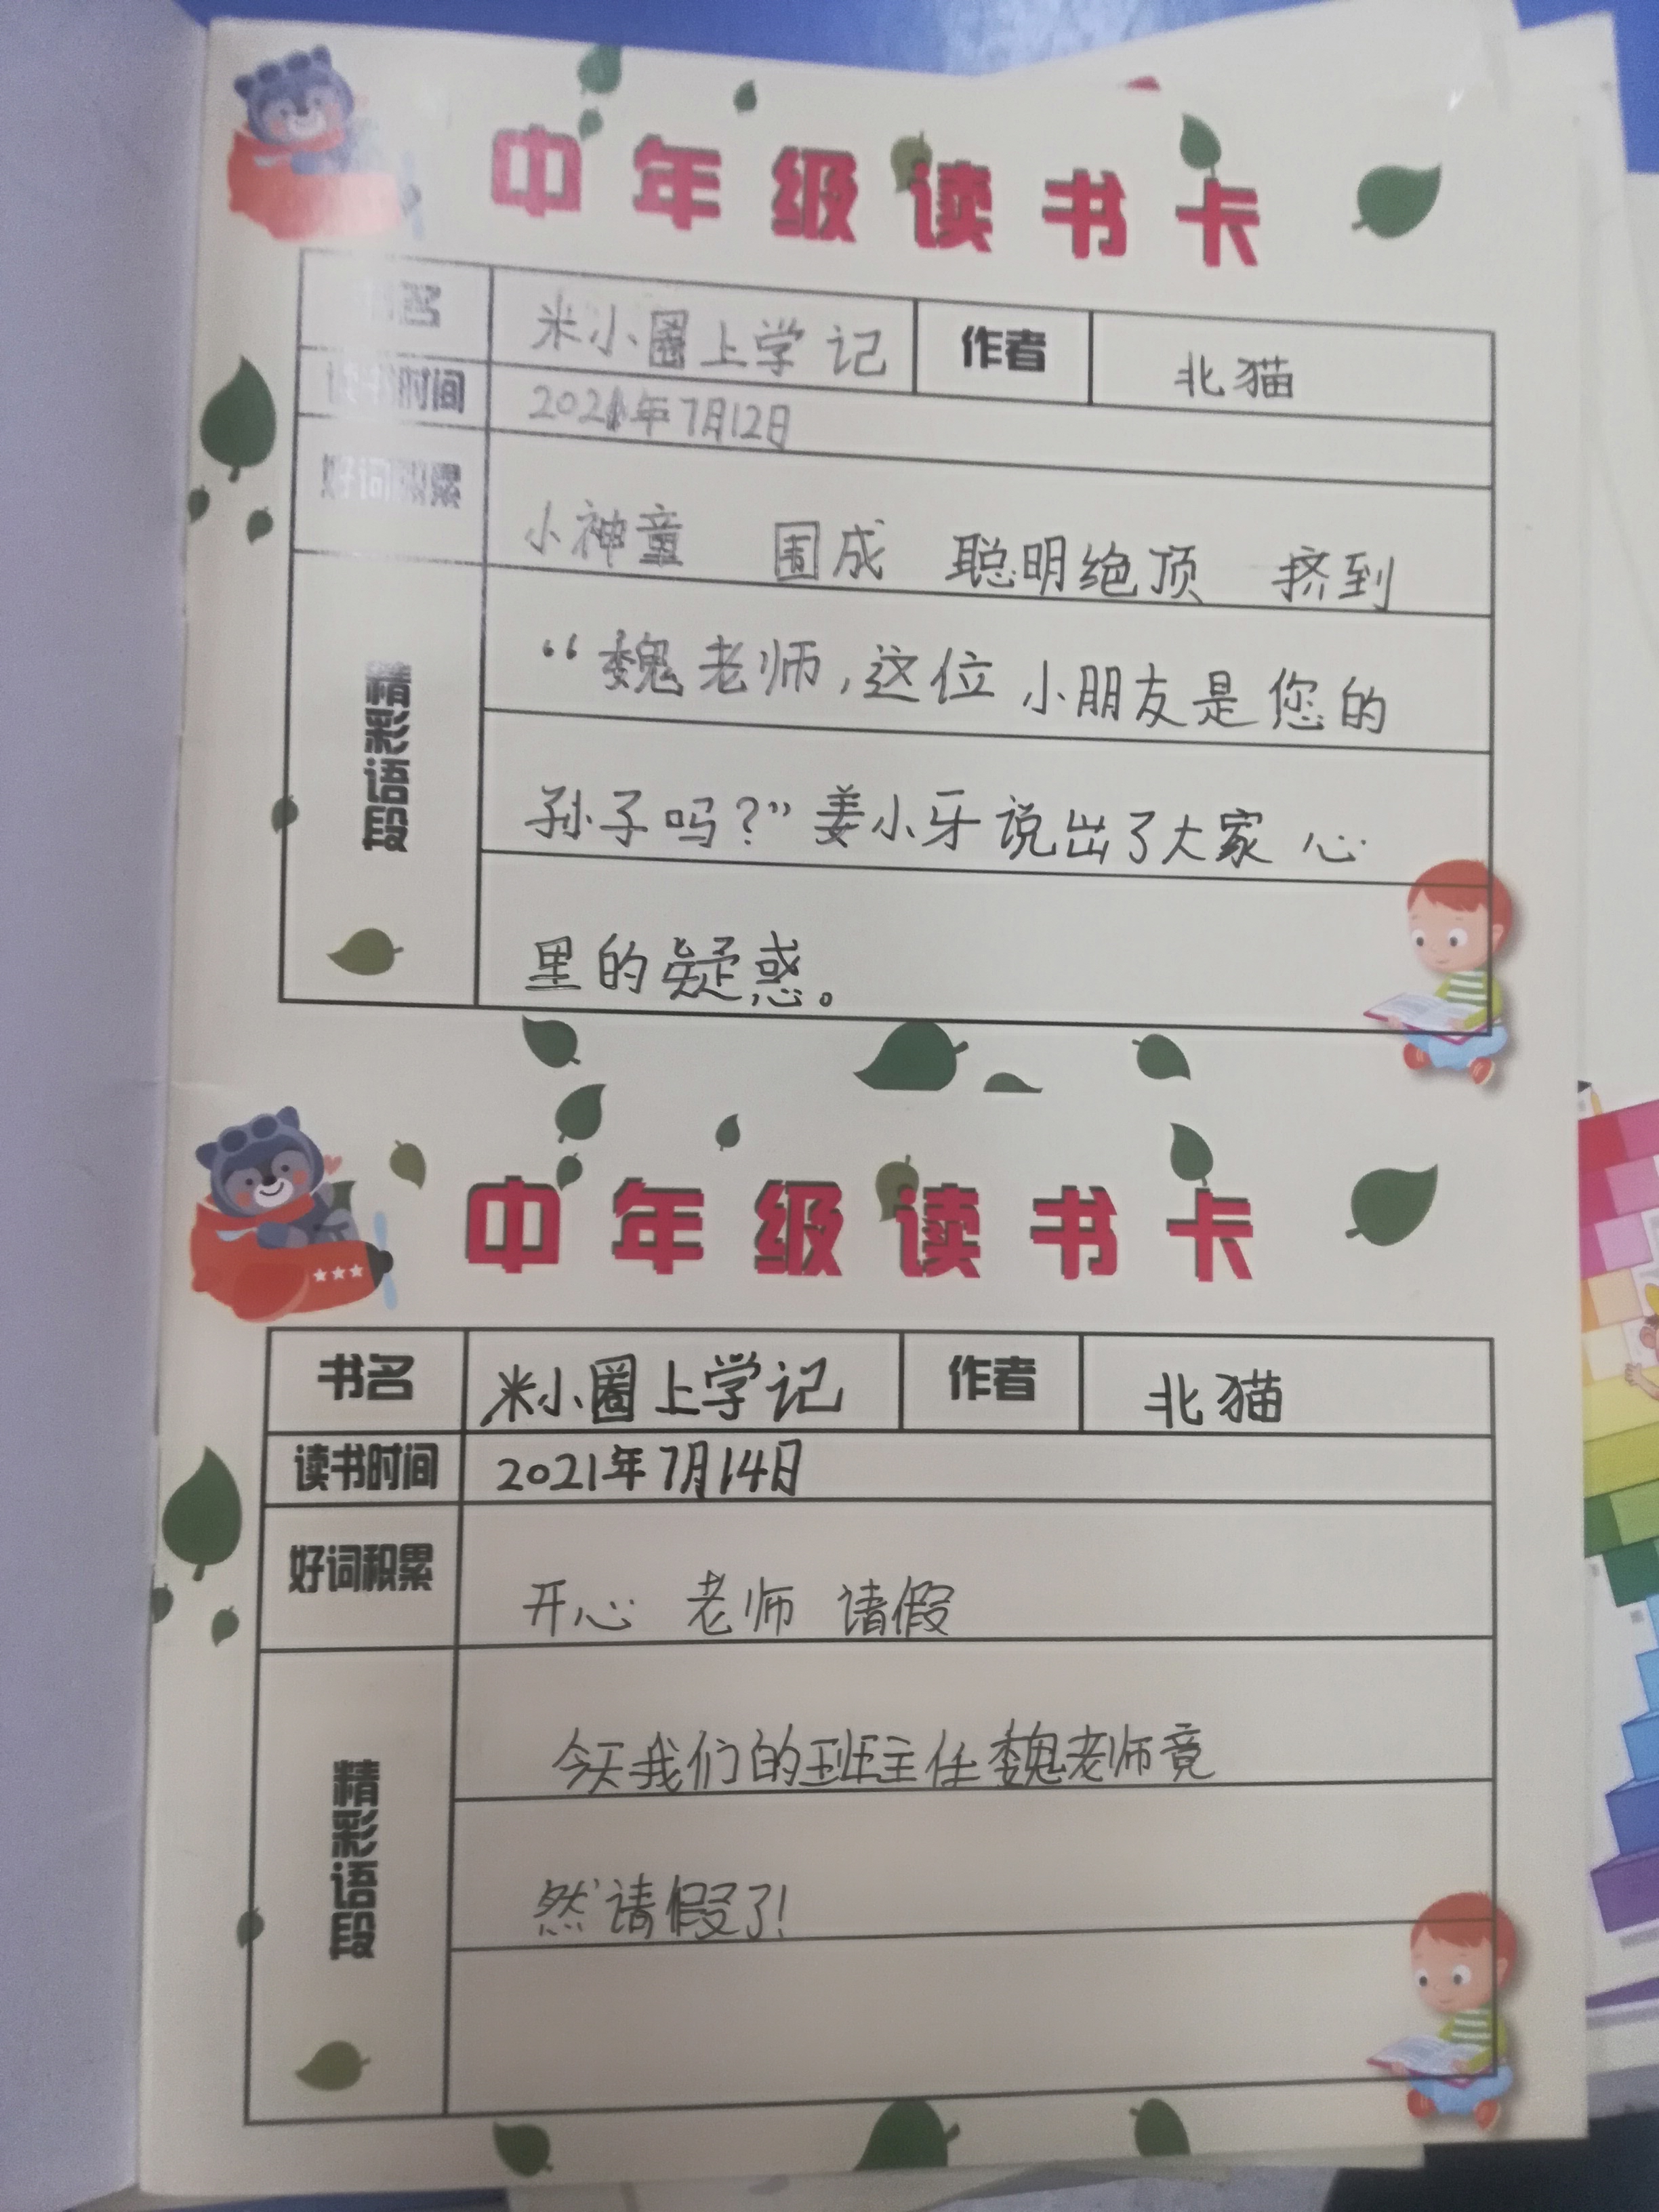 中年级读书卡
书名 米小圈上学记 作者 北猫
读书时间 2021年7月12日
好词积累 小神童 围成 聪明绝顶 挤到
精彩语段
“魏老师,这位小朋友是您的
孙子吗?”姜小牙说出了大家心
里的疑惑。
中年级读书卡
书名 米小圈上学记 作者 北猫
读书时间 2021年7月14日
好词积累 开心 老师 请假
精彩语段
今天我们的班主任魏老师竟
然请假了!